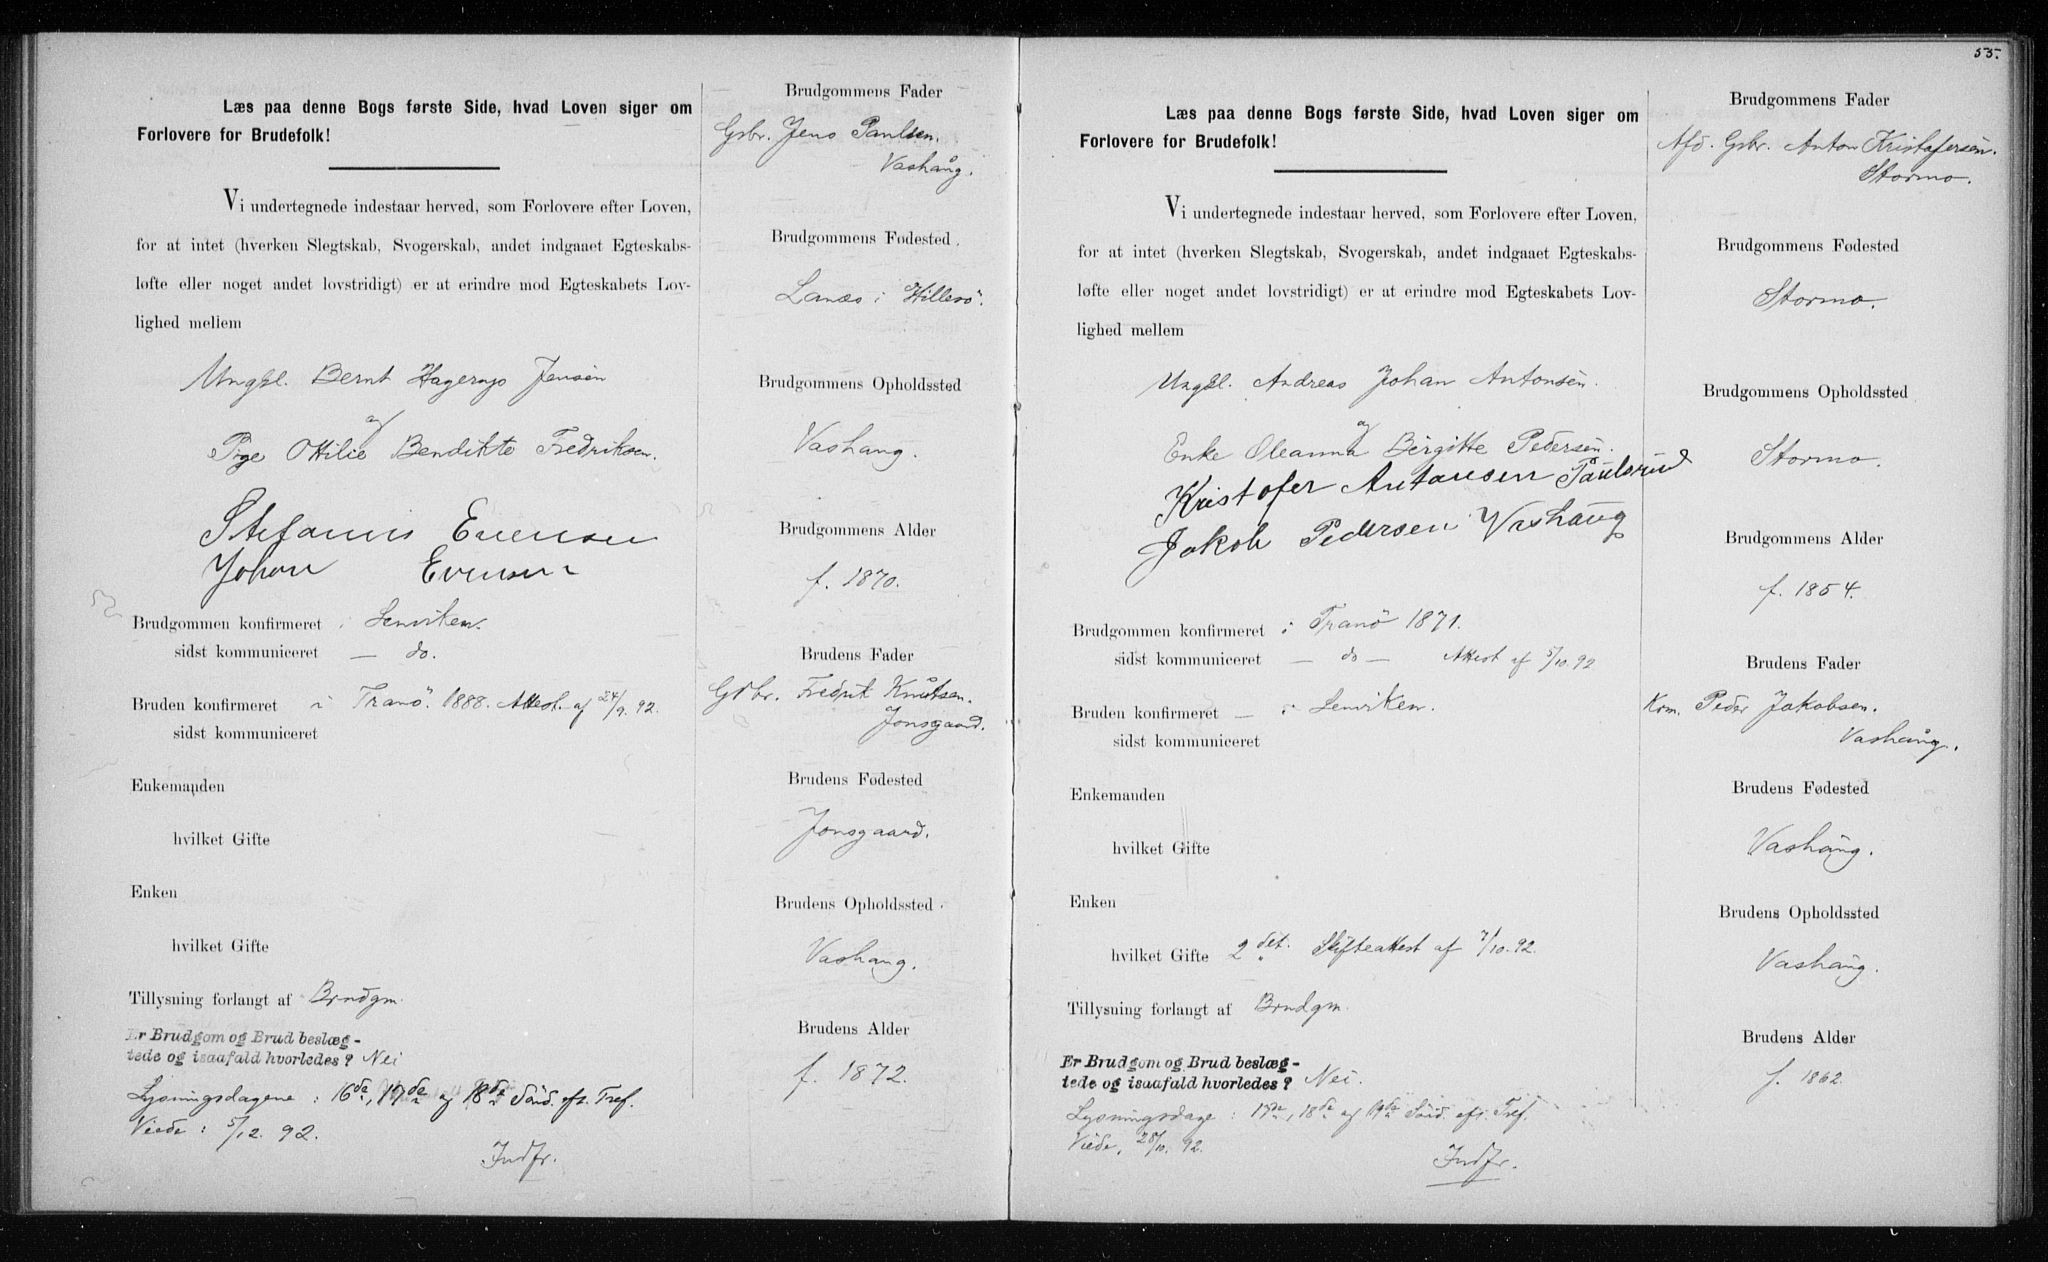 Læs paa denne Bogs første Side, hvad Loven siger om
Forlovere for Brudefolk!
Vi undertegnede indestaar herved, som Forlovere efter Loven,
for at intet (hverken Slegtskab, Svogerskab, andet indgaaet Egteskabs-
løfte eller noget andet lovstridigt) er at erindre mod Egteskabets Lov-
lighed mellem
Ungkl. Bernt Jensen
og
Pige Ottilie Bendikte Fredriksen.
Stefanus Evensen
Johan Evensen
Brudgommen konfirmeret i Lenviken.
sidst kommuniceret — do.
Bruden konfirmeret i Tranö. 1888. Attest af 24/9. 92.
sidst kommuniceret
Enkemanden
hvilket Gifte
Enken
hvilket Gifte
Tillysning forlangt af Brudgm.
Er Brudgom og Brud beslæg-
tede og isaafald hvorledes? Nei
Lysningsdagene : 16de, 17de og 18de Sönd. eft. Tref.
Viede : 5/12. 92.
Indfr.
Brudgommens Fader
Gsbr. Jens Paulsen.
Vashång.
Brudgommens Fødested.
Lanæs i Hillesö.
Brudgommens Opholdssted
Vashang.
Brudgommens Alder
f. 1870.
Brudens Fader
Gdbr. Fredrik Knutsen.
Jonsgaard.
Brudens Fødested
Jonsgaard.
Brudens Opholdssted.
Vashang.
Brudens Alder
f. 1872.
55.
Læs paa denne Bogs første Side, hvad Loven siger om
Forlovere for Brudefolk!
Vi undertegnede indestaar herved, som Forlovere efter Loven,
for at intet (hverken Slegtskab, Svogerskab, andet indgaaet Egteskabs-
løfte eller noget andet lovstridigt) er at erindre mod Egteskabets Lov-
lighed mellem
Ungkl. Andreas Johan Antonsen.
og
Enke Oleanna Birgitte Pedersen.
Kristofer Antonsen Paulsrud
Jakob Pedersen Vashaug
Brudgommen konfirmeret i Tranö 1871.
sidst kommuniceret — do — Attest af 5/10. 92
Bruden konfirmeret — i Lenviken.
sidst kommuniceret
Enkemanden
hvilket Gifte
Enken
hvilket Gifte 2det. Skifteattest af 7/10. 92.
Tillysning forlangt af Brudgm.
Er Brudgom og Brud beslæg-
tede og isaafald hvorledes? Nei.
Lysningsdage : 17de, 18de og 19de Sönd. eft. Tref.
Viede, 28/10. 92.
Indfr.
Brudgommens Fader
Afd. Gsbr. Anton Kristofersen.
Stormo.
Brudgommens Fødested
Stormo.
Brudgommens Opholdssted
Stormo.
Brudgommens Alder
f. 1854.
Brudens Fader
Peder Jakobsen.
Vashång.
Brudens Fødested
Vashång.
Brudens Opholdssted
Vashång.
Brudens Alder
f. 1862.